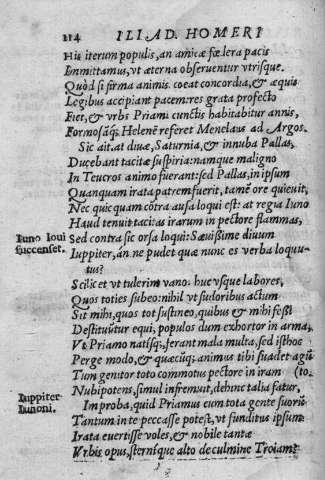 214 ILIAD. HOMERI
His iterum populis, an amicæ fœdera pacis
Immittamus, vt æterna obseruentur vtrisque.
Quòd si firma animis coëat concordia, & æquis
Legibus accipiant pacem: res grata profecto
Fiet, & vrbs Priami cunctis habitabitur annis,
Formosámq; Helenē referet Menelaus ad Argos.
Sic ait. at diuæ, Saturnia, & innuba Pallas,
Ducebant tacitæ suspiria: namque maligno
In Teucros animo fuerant: sed Pallas, in ipsum
Quanquam irata patrem fuerit, tamē ore quieuit,
Nec quicquam cōtra ausa loqui est: at regia Iuno
Haud tenuit tacitas irarum in pectore flammas,
Iuno Ioui succenset.
Sed contra sic orsa loqui: Sæuissime diuum
Iuppiter, an ne pudet quæ nunc es verba loquu-
tus?
Scilicet vt tulerim vano. huc vsque labores,
Quos toties subeo: nihil vt sudoribus actum
Sit mihi, quot tot sustineo, quibus & mihi fessi
Destituūtur equi, populos dum exhortor in arma,
Vt Priamo natisq; ferant mala multa, sed isthoc
Perge modo, & quæcūq; animus tibi suadet agi
Tum genitor toto commotus pectore in iram (to.
Nubipotens, simul infremuit, dehinc talia fatur,
Iuppiter Iunoni.
Improba, quid Priamus cum tota gente suorū
Tantum in te peccasse potest, vt funditus ipsum
Irata euertisse voles, & nobile tantæ
Vrbis opus, sterniq́ue alto de culmine Troiam?